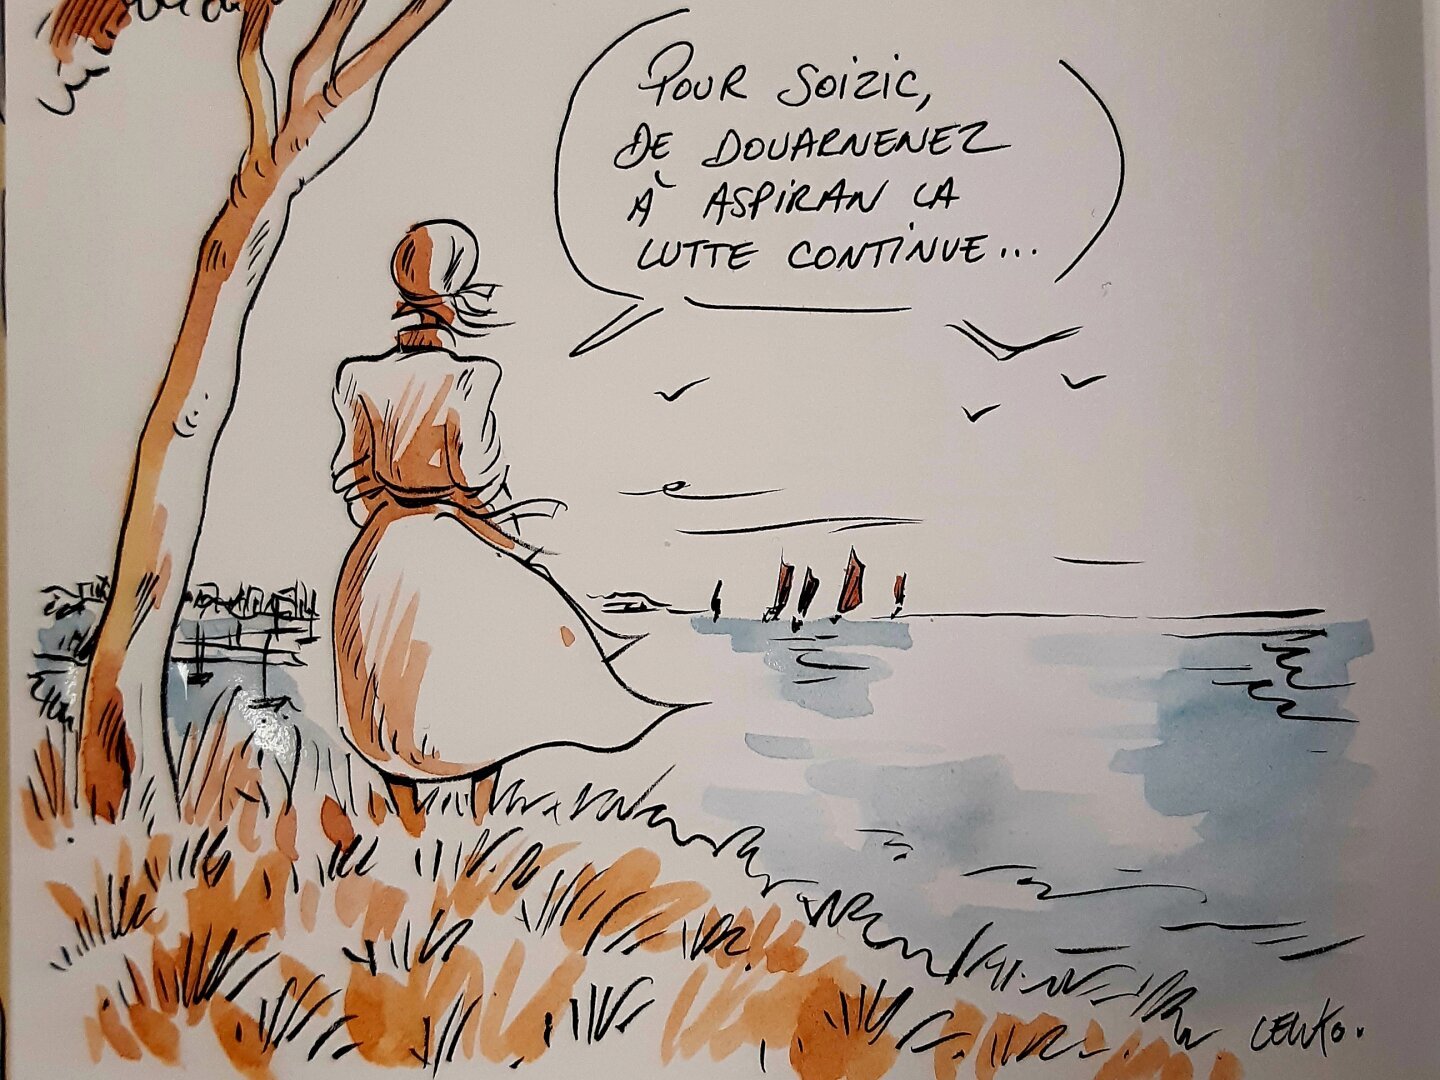 POUR SOIZIC,
DE DOUARNENEZ
À ASPIRAN LA
LUTTE CONTINUE...